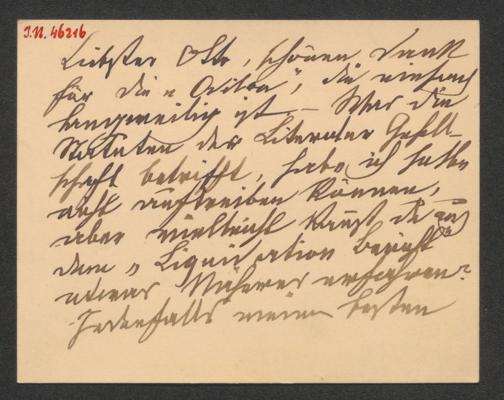 J.N. 46216
Liebster Otto, schönen Dank
für die „ ", die einfach
langweilig ist. – Was die
Statuten der Literatur Gesell-
schaft betrifft, habe ich selbe
nicht auftreiben können,
aber vielleicht kannst du aus
dem „Liquidation Bericht"
etwas Näheres erfahren?
Jedenfalls meinen besten